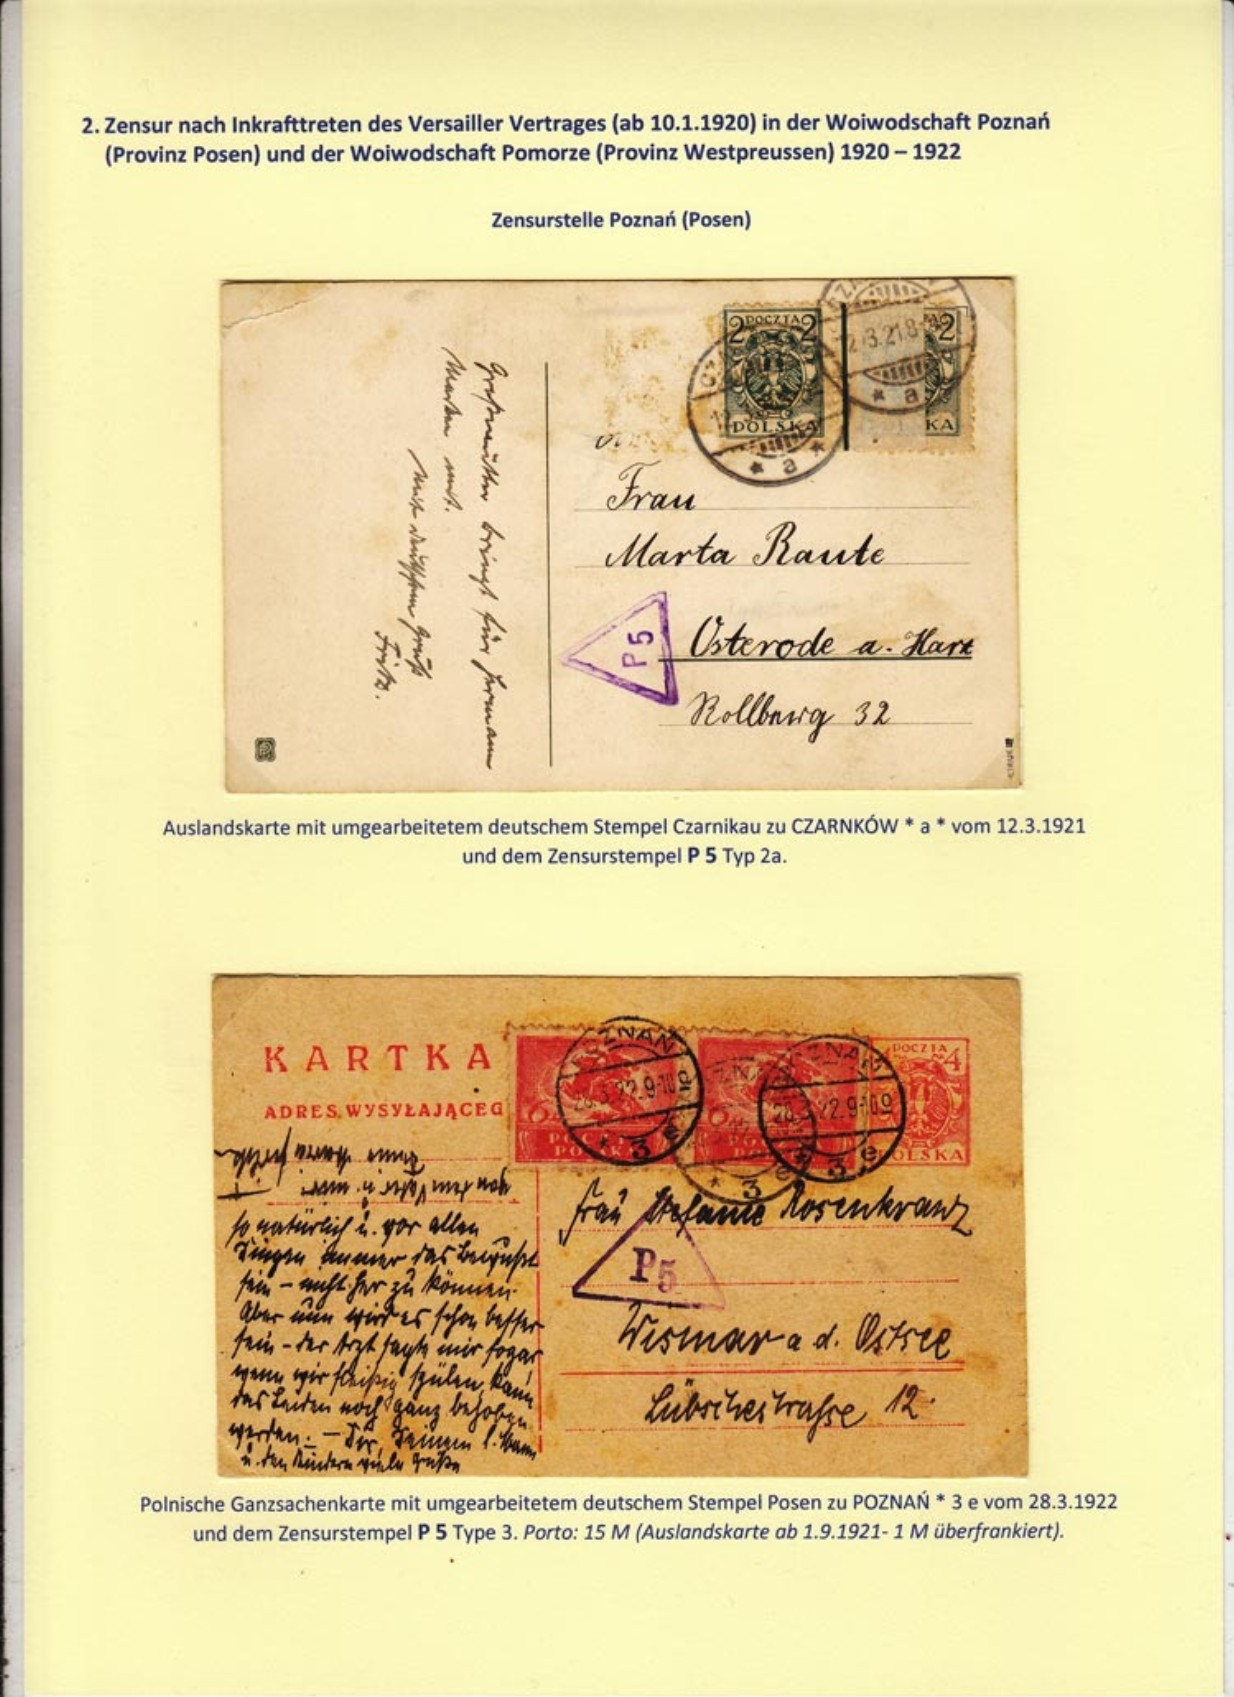 2. Zensur nach Inkrafttreten des Versailler Vertrages (ab 10.1.1920) in der Woiwodschaft Poznań
(Provinz Posen) und der Woiwodschaft Pomorze (Provinz Westpreussen) 1920 – 1922
Zensurstelle Poznań (Posen)
2 POCZTA 2
POLSKA
2
KA
2.3.21.8-
* a *
* a
Großmutter bringt für Hermann
Marken mit.
Mit deutschem Gruß
Fritz.
Frau
Marta Raute
P 5
Osterode a. Harz
Rollberg 32
Auslandskarte mit umgearbeitetem deutschem Stempel Czarnikau zu CZARNKÓW * a * vom 12.3.1921
und dem Zensurstempel P 5 Typ 2a.
KARTKA
ADRES WYSYŁAJĄCEG
POZNAŃ
28.3.22.9-10
* 3 e
POCZTA
POLSKA
POZNAŃ
28.3.22.9-10
3 e
* 3 e
POCZTA 4
POLSKA
so natürlich u. vor allen
Dingen immer das Bewußt
sein – nicht her zu können.
Aber nun wird es schon besser
sein – der Arzt sagte mir sogar
wenn wir fleißig spülen, kann
das Leiden noch ganz behoben
werden. – Dir, Deinem l. Mann
u. den Kindern viele Grüße
Frau Stefanie Rosenkranz
P5
Wismar a d. Ostsee
Lübschestrasse 12.
Polnische Ganzsachenkarte mit umgearbeitetem deutschem Stempel Posen zu POZNAŃ * 3 e vom 28.3.1922
und dem Zensurstempel P 5 Type 3. Porto: 15 M (Auslandskarte ab 1.9.1921- 1 M überfrankiert).